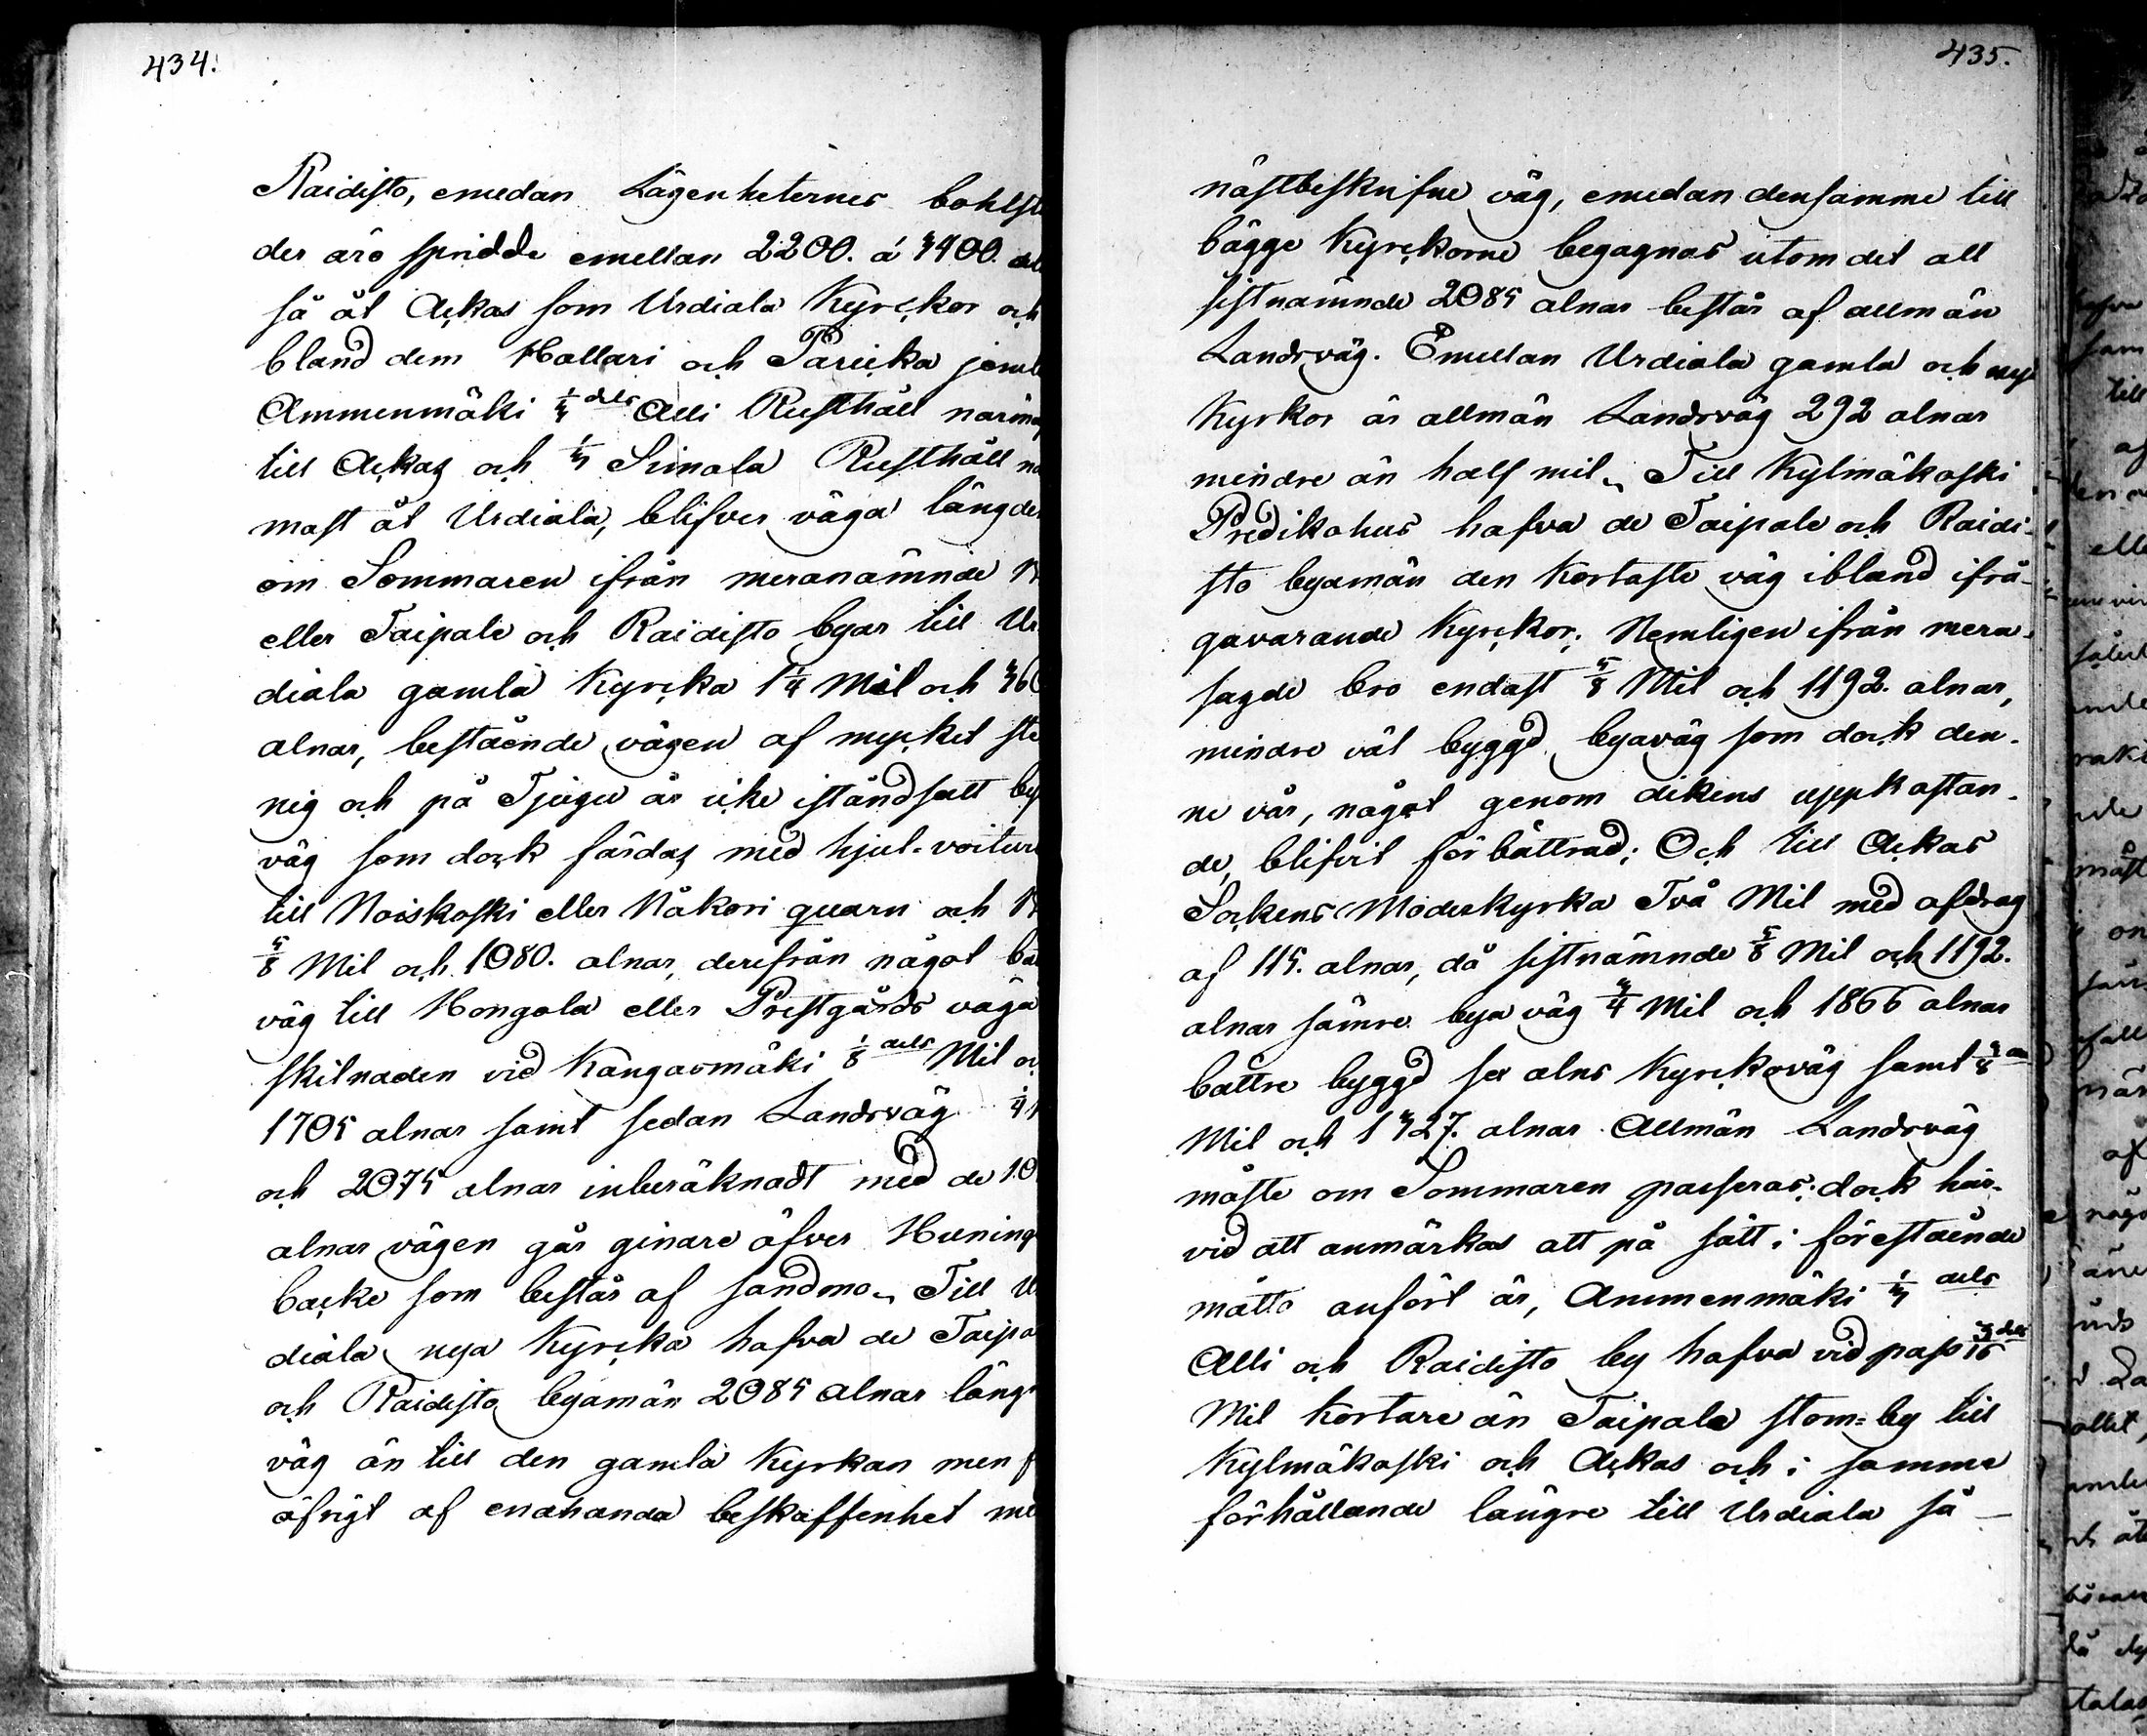 434.
Raidisto, emedan Lägenheternes bohlstä
der äro spridde emellan 2200. á 3400. al
så åt Ackas som Urdiala Kyrckor och
bland dem Hallari och Paricka jemte
Ammenmäki 1/3 dels Alli Rusthåll närma
till Ackas och 1/3 Simola Rusthåll nä
mast åt Urdiala, blifver väga längden
om Sommaren ifrån meranämnde
eller Taipale och Raidisto byar till Ur
diala gamla Kyrcka 1 1/4 Mil och 360
alnar, bestående vägen af mycket ste
nig och på Tjugu år icke iståndsatt by
väg som dock färdas med hjul-voiture
till Noiskoski eller Näkori quarn och
5/8 Mil och 1080. alnar, derifrån något bä
väg till Hongola eller Prestgårds väga
skilnaden vid Kangasmäki 1/8 dels Mil oc
1705 alnar samt sedan Landsväg 1/4
och 2075 alnar inberäknadt med de 10
alnar vägen går ginare öfver Huning
backe som består af sandmo. Till Ur
diala nya Kyrcka hafva de Taipa
och Raidisto byamän 2085 alnar läng
väg än till den gamla Kyrkan men f
öfrigt af enahanda beskaffenhet me
435.
nästbeskrifne väg, emedan densamme till
bägge Kyrckorne begagnas utom det all
sistnämnde 2085 alnar består af allmän
Landsväg. Emellan Urdiala gamla och nya
Kyrkor är allmän Landsväg 292 alnar
mindre än half mil. Till Kylmäkoski
Predikohus hafva de Taipale och Raidi-
sto byamän den kortaste väg ibland ifrå-
gavarande Kyrckor; Nemligen ifrån mera-
sagde bro endast 5/8 Mil och 1192. alnar,
mindre väl byggd byaväg som dock den-
ne vår, något genom dikens uppkastan-
de, blifvit förbättrad; Och till Ackas
Sockens Moderkyrka Två Mil med afdrag
af 115. alnar, då sistnämnde 5/8 Mil och 1192.
alnar sämre bya väg 3/4 Mil och 1866 alnar
bättre byggd sex alns Kyrckoväg samt 3/8
Mil och 1327. alnar Allmän Landsväg
måste om Sommaren passeras; dock här-
vid att anmärkas att på sätt i förestående
mätto anfört är, Ammenmäki 1/3 dels
Alli och Raidisto by hafva vid pass 3/16 dels
Mil kortare än Taipale stom-by till
Kylmäkoski och Ackas och i samma
förhållande längre till Urdiala så